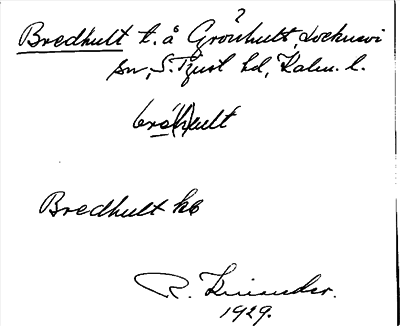 ?
Bredhult t. å Grönhult, Locknevi
sn, S. Tjust hd, Kalm. l.
brä(h)ult
Bredhult kb
R.
1929.